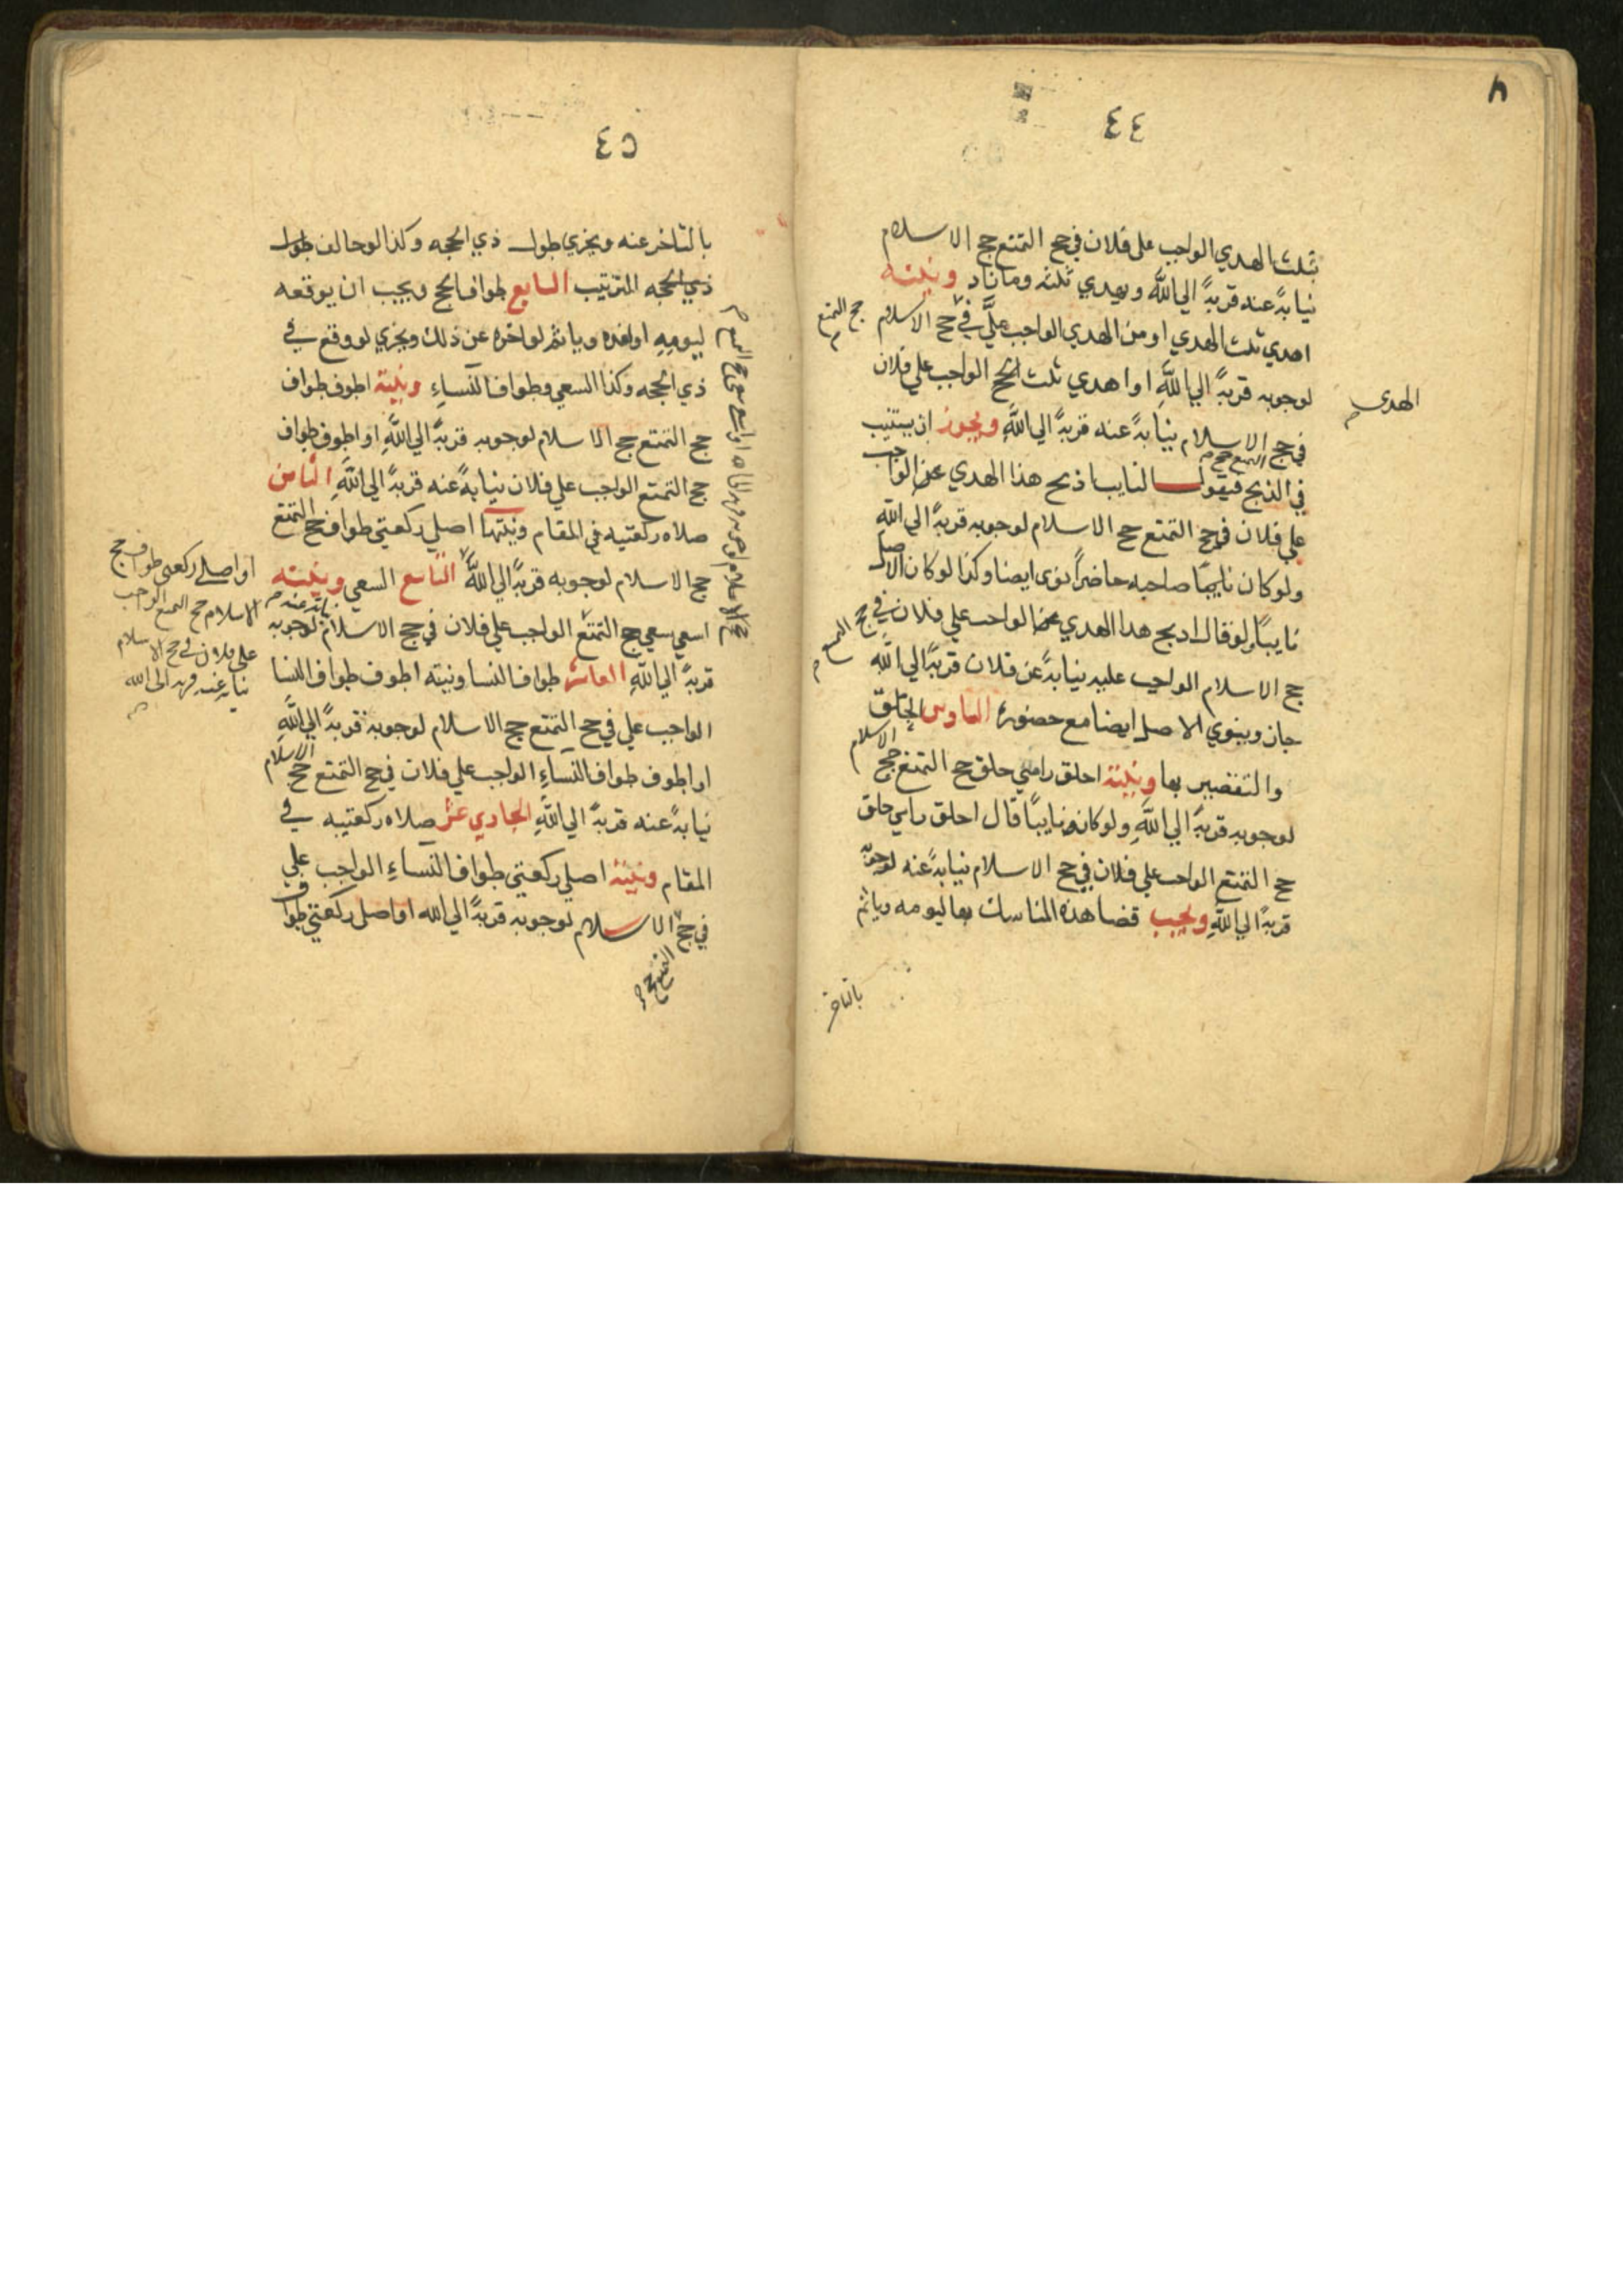 ٤٤
بثلث الهدي الواجب على فلان في حج التمتع حج الاسلام
نيابةً عنه قربةً الي الله ويهدي ثلثه وما زاد ونيته
اهدي ثلث الهدي او من الهدي الواجب عليَّ في حج الاسلام
حج التمتع
لوجوبه قربةً الي اللهِ او اهدي ثلث الحج الواجب علي فلان
الهدي
في حج الاسلام نيابةً عنه قربةً الي اللهِ ويجوز ان يستنيب
التمتع حج
في الذبح فيقول النايب اذبح هذا الهدي عن الواجب
علي فلان في حج التمتع حج الاسلام لوجوبه قربةً الي الله
ولو كان نايبًا صاحبه حاضراً نوى ايضا وكذا لو كان الاصل
نايبًا ولو قال اذبح هذا الهدي الواجب علي فلان في حج
التمتع
حج الاسلام الواجب عليه نيابةً عن فلان قربةً الي اللهِ
جاز وينوي الاصل ايضا مع حضوره السادس الحلق
والتقصير بها ونيته احلق راسي حلق حج التمتع حج الاسلام
لوجوبه قربةً الي اللهِ ولو كان نايبًا قال احلق راسي حلق
حج التمتع الواجب علي فلان في حج الاسلام نيابةً عنه لوجوبه
قربةً الي اللهِ ويجب قضا هذه المناسك بها ليومه وياثم
بالتاخر
٤٥
بالتاخر عنه ويجزي طول ذي الحجه وكذا لو خالف طول
ذي الحجه الترتيب السابع طواف الحج ويجب ان يوقعه
ليومِهِ او لغده وياثم لو اخره عن ذلك ويجزي لو وقع في
ذي الحجه وكذا السعي وطواف النساءِ ونيته اطوف طواف
حج التمتع حج الاسلام لوجوبه قربةً الي اللهِ او اطوف طواف
حج التمتع الواجب علي فلان نيابةً عنه قربةً الي اللهِ الثامن
صلاه ركعتيه في المقام ونيتها اصلي ركعتي طواف حج التمتع
حج الاسلام لوجوبه قربةً الي اللهِ التاسع السعي ونيته
او اصلي ركعتي طواف حج
الاسلام حج التمتع الواجب
على فلان في حج الاسلام
نيابة عنه قربة الى الله
اسعي سعي حج التمتع الواجب علي فلان في حج الاسلام لوجوبه
نيابة عنه
قربةً الي اللهِ العاشر طواف النسا ونيته اطوف طواف النسا
الواجب علي في حج التمتع حج الاسلام لوجوبه قربةً الي اللهِ
او اطوف طواف النساءِ الواجب علي فلان في حج التمتع حج الاسلام
نيابةً عنه قربةً الي اللهِ الحادي عشر صلاه ركعتيه في
المقام ونيته اصلي ركعتي طواف النساءِ الواجب علي
في حج الاسلام لوجوبه قربةً الي الله او اصلي ركعتي طواف
التمتع حج